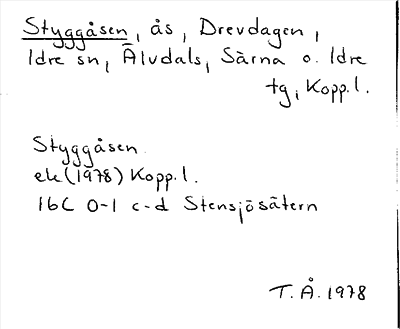 Styggåsen, ås, Drevdagen,
Idre sn, Älvdals, Särna o. Idre
tg, Kopp.l.
Styggåsen
ek (1978) Kopp.l.
16C 0-1 c-d Stensjösätern
T.Å. 1978